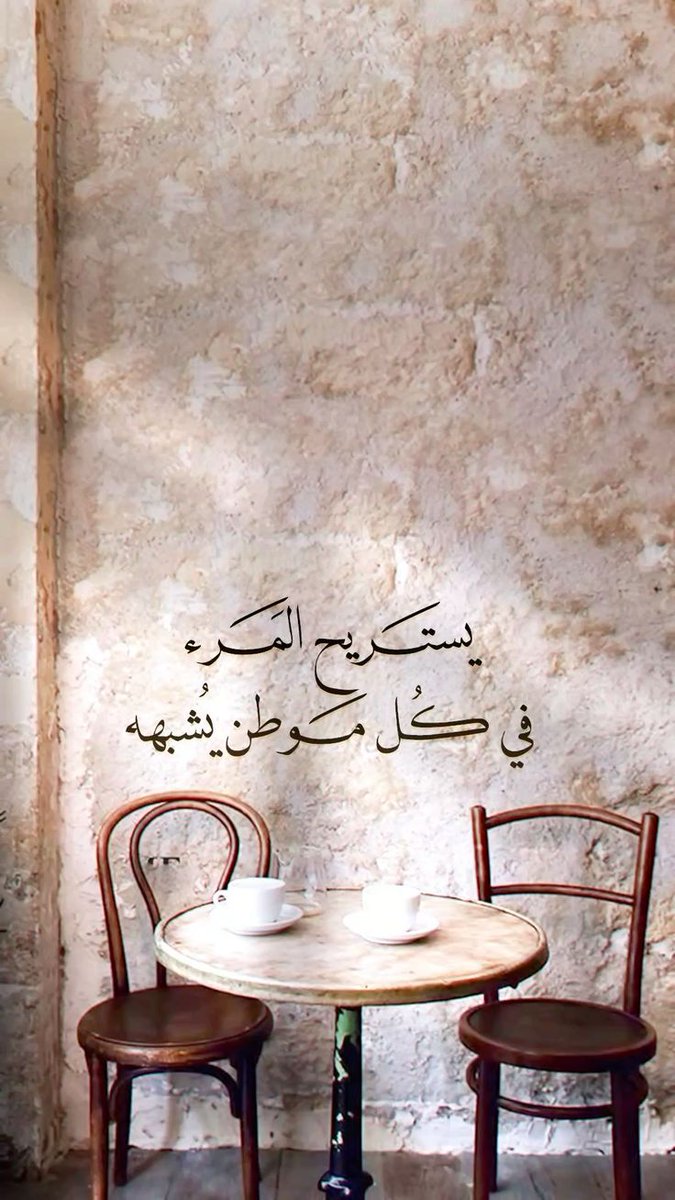 يستريح المَرء
في كُل مَوطن يُشبهه